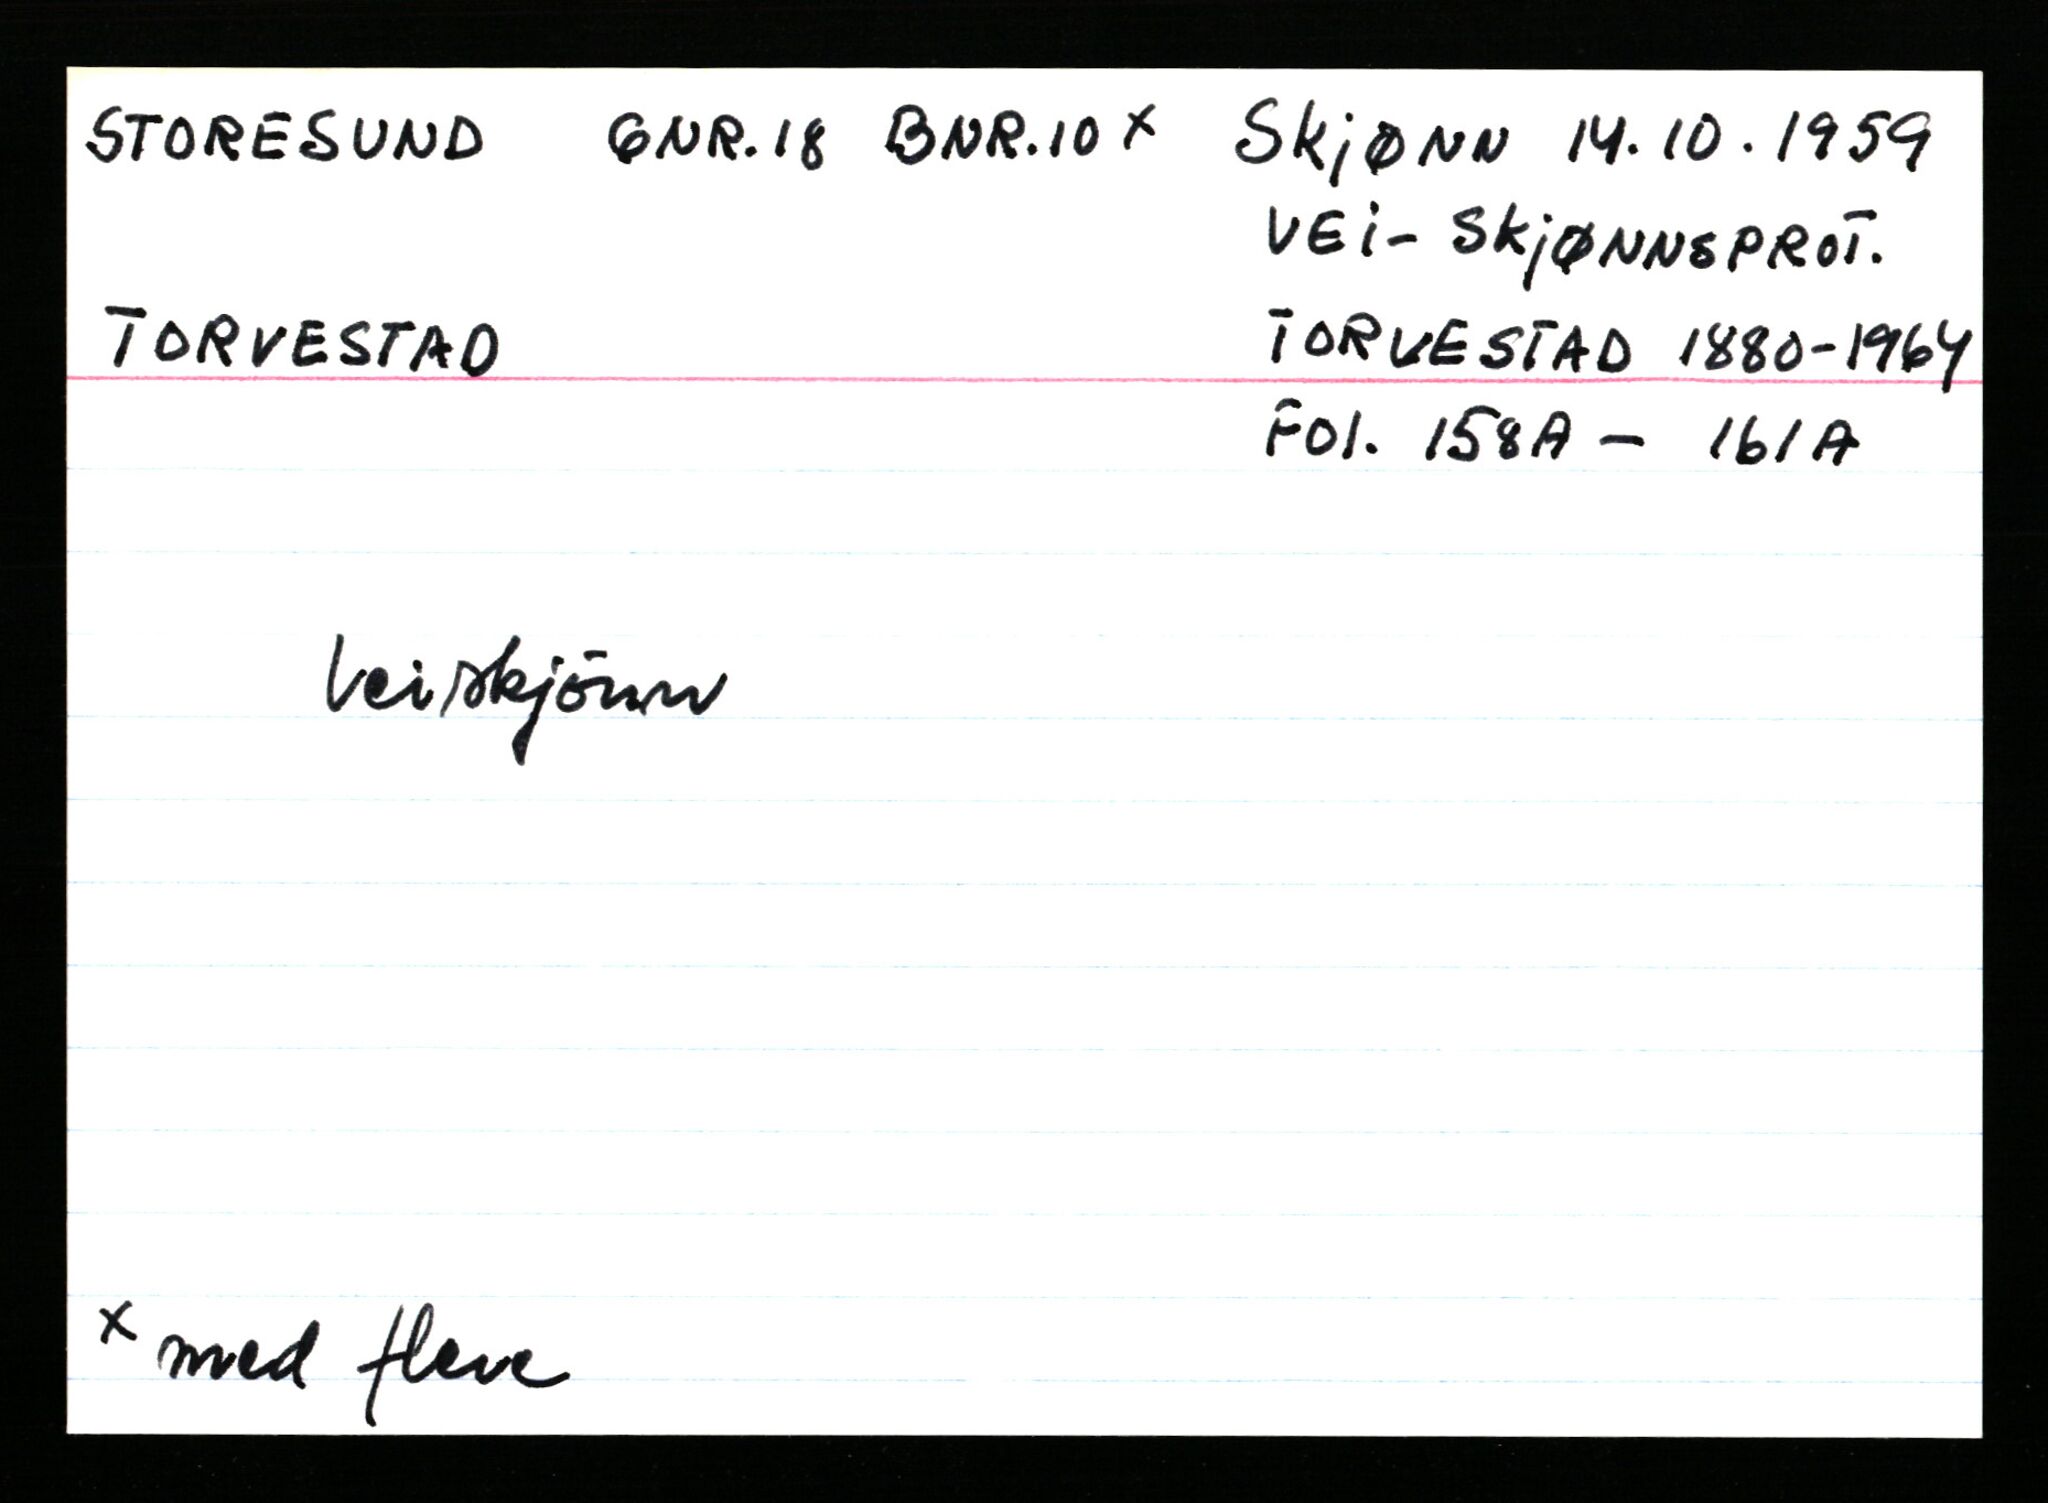 STORESUND GNR.18 BNR.10 x Skjønn 14.10.1959
VEi- SkjØNNSPROT.
TORVESTAD TORVESTAD 1880-1964
FOl. 158A - 161A
Veiskjönn
x med flere